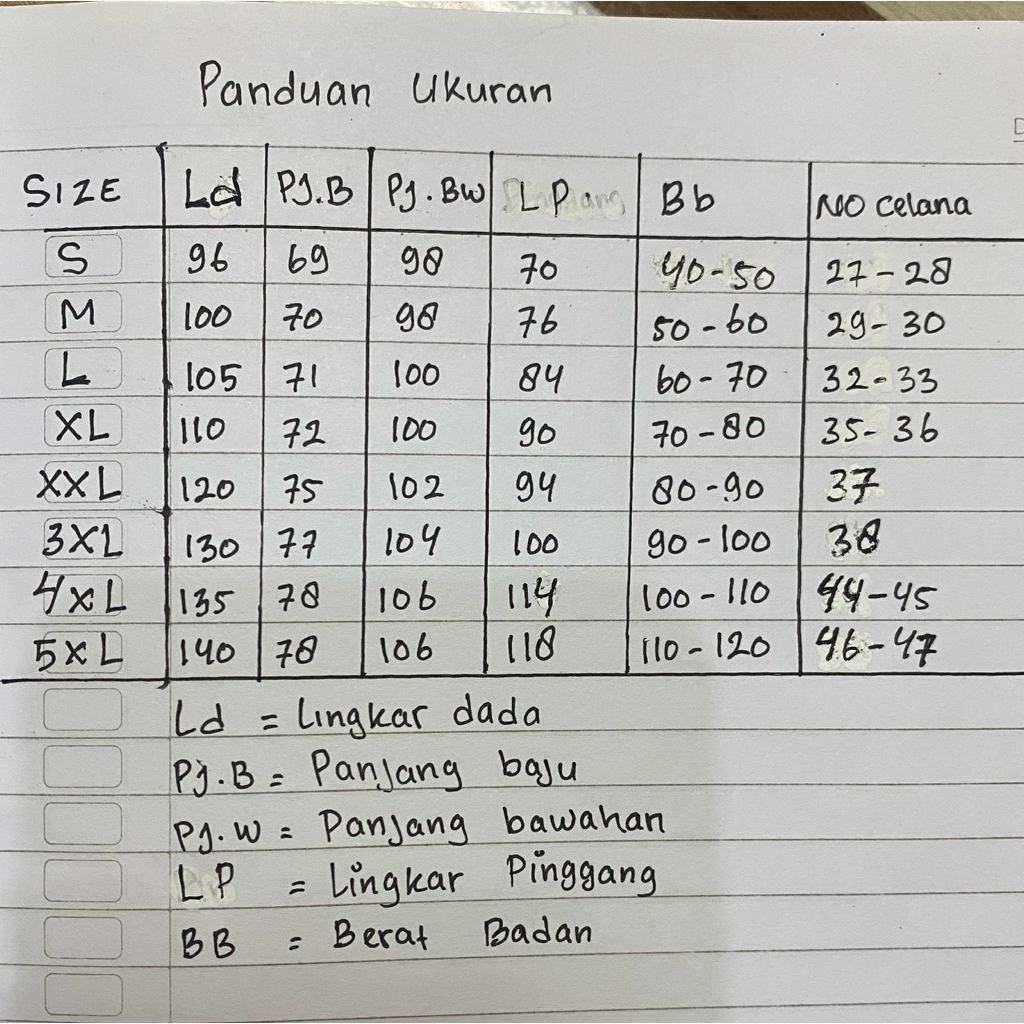 Panduan Ukuran
SIZE Ld PJ.B Pj.Bw LP Bb NO celana
S 96 69 98 70 40-50 27-28
M 100 70 98 76 50-60 29-30
L 105 71 100 84 60-70 32-33
XL 110 72 100 90 70-80 35-36
XXL 120 75 102 94 80-90 37
3XL 130 77 104 100 90-100 38
4XL 135 78 106 114 100-110 44-45
5XL 140 78 106 118 110-120 46-47
Ld = Lingkar dada
Pj.B = Panjang baju
Pj.W = Panjang bawahan
LP = Lingkar Pinggang
BB = Berat Badan